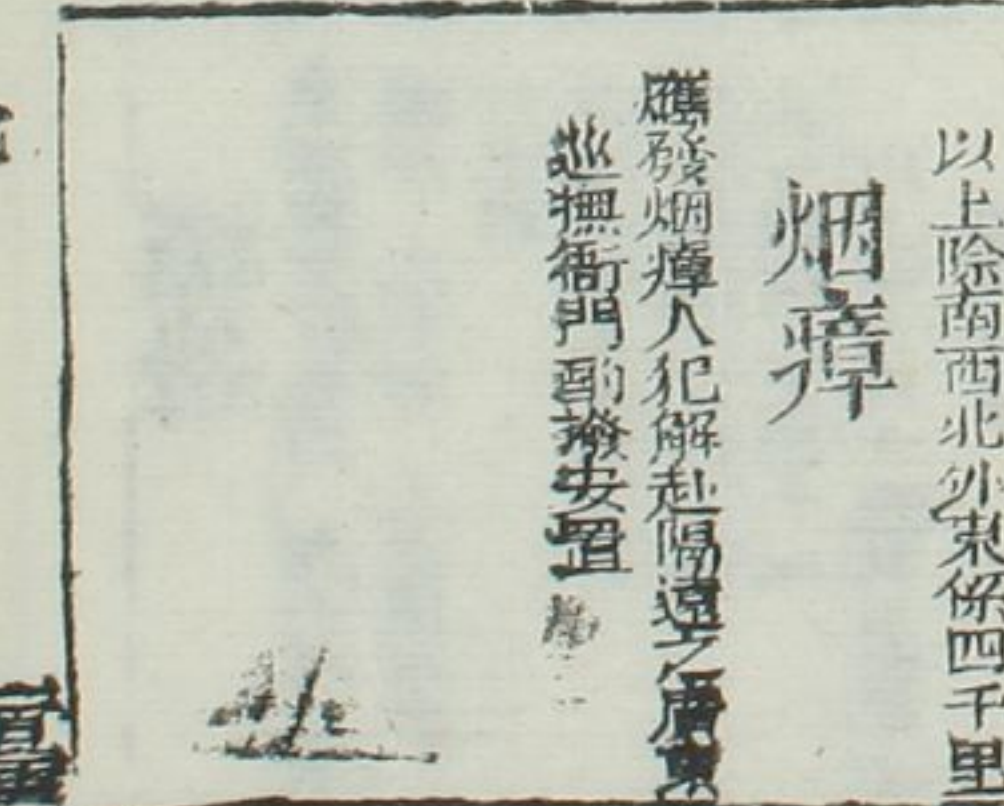 以上除南西北外東係四千里
烟瘴
應發烟瘴人犯解赴隔遠之廣東
巡撫衙門酌撥安置